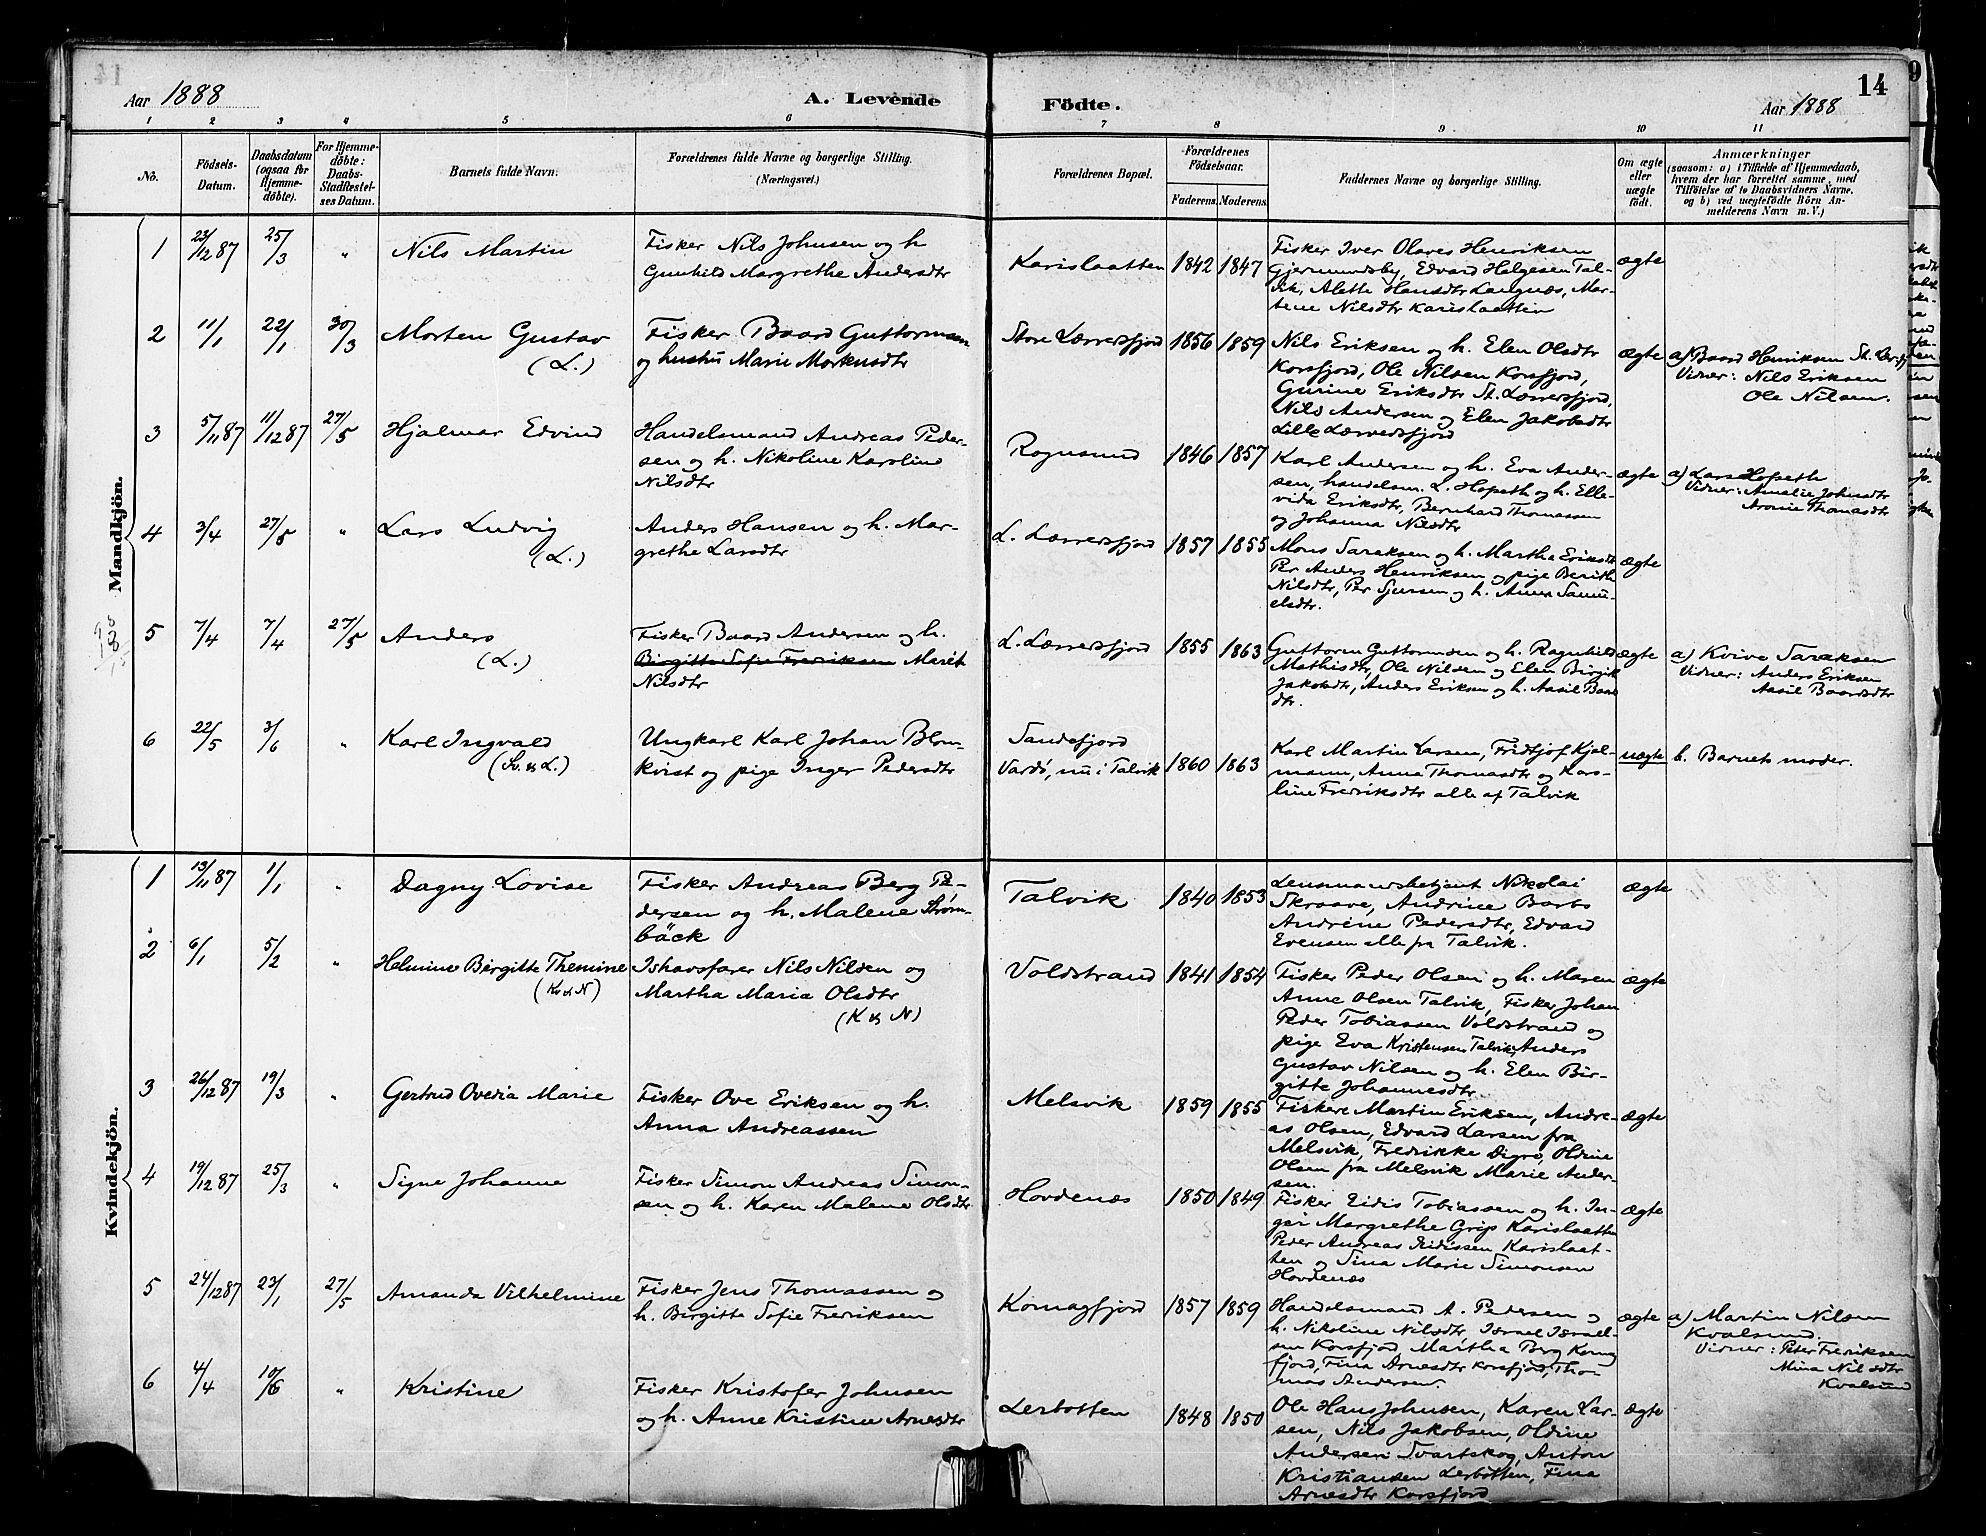 14
Aar 1888
A. Levende
Födte.
Aar 1888
1 2 3 4 5 6 7 8 9 10 11
No.
Födsels-
Datum.
Daabsdatum
(ogsaa for
Hjemme-
döbte).
For Hjemme-
döbte:
Daabs-
Stadfæstel-
ses Datum.
Barnets fulde Navn.
Forældrenes fulde Navne og borgerlige Stilling.
(Næringsvei.)
Forældrenes Bopæl.
Forældrenes
Födselsaar.
Faderens. Moderens.
Faddernes Navne og borgerlige Stilling.
Om ægte
eller
uægte
födt.
Anmærkninger
(saasom: a) i Tilfælde af Hjemmedaab,
hvem der har forrettet samme, med
Tilföielse af to Daabsvidners Navne,
og b) ved uægtefödte Börn An-
melderens Navn m. V.)
Mandkjön.
1 23/12 87 25/3 " Nils Martin
Fisker Nils Johnsen og h.
Gunhild Margrethe Andersdtr
Karislaatten 1842 1847
Fisker Iver Olaves Henriksen
Gjermundsby, Edvard Helgesen Tal-
vik, Alette Hansdtr Langnæs, Mar-
tene Nilsdtr Karislaatten
ægte
2 11/1 22/1 30/3 Morten Gustav
(L.)
Fisker Baard Guttormsen
og hustru Marie Markusdtr
Store Lærresfjord 1856 1859
Nils Eriksen og h. Elen Olsdtr
Korsfjord, Ole Nilsen Korsfjord,
Gurine Eriksdtr St. Lærresfjord,
Nils Andersen og Elen Jakobsdtr
Lille Lærredsfjord
ægte
a) Baard Henriksen St.
Vidner: Nils Eriksen
Ole Nilsen.
3 5/11 87 11/12 87 27/5 Hjalmar Edvind
Handelsmand Andreas Peder-
sen og h. Nikoline Karoline
Nilsdtr
Rognsund 1846 1857
Karl Andersen og h. Eva Ander-
sen, handelsm. L. Hopeth og h. Elle-
vida Eriksdtr, Bernhard Thomassen
og Johanna Nilsdtr
ægte
a) Lars Hopeth
Vidner: Amalie Johnsdtr
Aronie Thomasdtr
4 3/4 27/5 " Lars Ludvig
(L.)
Anders Hansen og h. Mar-
grethe Larsdtr
L. Lærresfjord 1857 1855
Mons Saraksen og h. Martha Eriksdtr
Per Anders Henriksen og pige Berith
Nilsdtr, Per Sjursen og h. Anne Samu-
elsdtr.
ægte
5 7/4 7/4 27/5 Anders
(L.)
Fisker Baard Andersen og h.
Birgitte Sofie Fredriksen Marét
Nilsdtr
L. Lærresfjord 1855 1863
Guttorm Guttormsen og h. Ragnhild
Mathisdtr, Ole Nilsen og Elen Birgit
Jakobsdtr, Anders Eriksen og h. Aasil Baar
dtr.
ægte
a) Kvive Saraksen
Vidner: Anders Eriksen
Aasil Baardsdtr
6 22/5 3/6 " Karl Ingvald
(Kv. og L.)
Ungkarl Karl Johan Blom-
kvist og pige Inger Pedersdtr
Sandefjord
Vardö, nu i Talvik 1860 1863
Karl Martin Larsen, Fridtjof Kjel-
mann, Anna Thomasdtr og Karo-
line Fredriksdtr alle af Talvik
uægte
b. Barnets moder.
Kvindekjön.
1 13/11 87 1/1 " Dagny Lovise
Fisker Andreas Berg Pe-
dersen og h. Malene Strøm-
bäck
Talvik 1840 1853
Lensmandsbetjent Nikolai
Skraave, Andrine Barbo
Andrine Pedersdtr, Edvard
Evensen alle fra Talvik.
ægte
2 6/1 5/2 " Helmine Birgitte Themine
(Kv og N)
Ishavsfarer Nils Nilsen og
Martha Maria Olsdtr
(K og N)
Voldstrand 1841 1854
Fisker Peder Olsen og h. Maren
Anne Olsen Talvik, Fisker Johan
Peder Tobiassen Voldstrand og
pige Eva Kristensen Talvik, Anders
Gustav Nilsen og h. Elen Bir-
gitte Johannesdtr.
ægte
3 26/12 87 19/3 " Gertrud Ovedia Marie
Fisker Ove Eriksen og h.
Anna Andreassen
Melsvik 1859 1855
Fiskere Martin Eriksen, Andre-
as Olsen, Edvard Larsen fra
Melsvik, Fredrikke Digre, Oldine
Olsen fra Melsvik Marie Ander-
sen.
ægte
4 19/12 87 25/3 " Signe Johanne
Fisker Simon Andreas Simon-
sen og h. Karen Malene Olsdtr
Hovdenæs 1850 1849
Fisker Eidis Tobiassen og h. In-
ger Margrethe Grip Karislaatten
Peder Andreas Eidissen Karislaat-
ten og Sina Marie Simonsen
Hovdenæs
ægte
5 24/12 87 23/1 27/5 Amanda Vilhelmine
Fisker Jens Thomassen og
h. Birgitte Sofie Fredriksen
Komagfjord 1857 1859
Handelsmand A. Pedersen og
h. Nikoline Nilsdtr, Israel Israel-
sen Korsfjord, Martha Berg Komag
fjord, Fina Arnesdtr Korsfjord, Tho-
mas Andersen.
ægte
a) Martin Nilsen
Kvalsund.
Vidner: Peter Fredriksen
Mina Nilsdtr
Kvalsund
6 4/4 10/6 " Kristine
Fisker Kristofer Johnsen
og h. Anne Kristine Arnesdtr
Lerbotten 1848 1850
Ole Hans Johnsen, Karen Lar-
sen, Nils Jakobsen, Oldine
Andersen Svartskog, Anton
Kristiansen Lerbotten, Fina
Arnesdtr Korsfjord
ægte